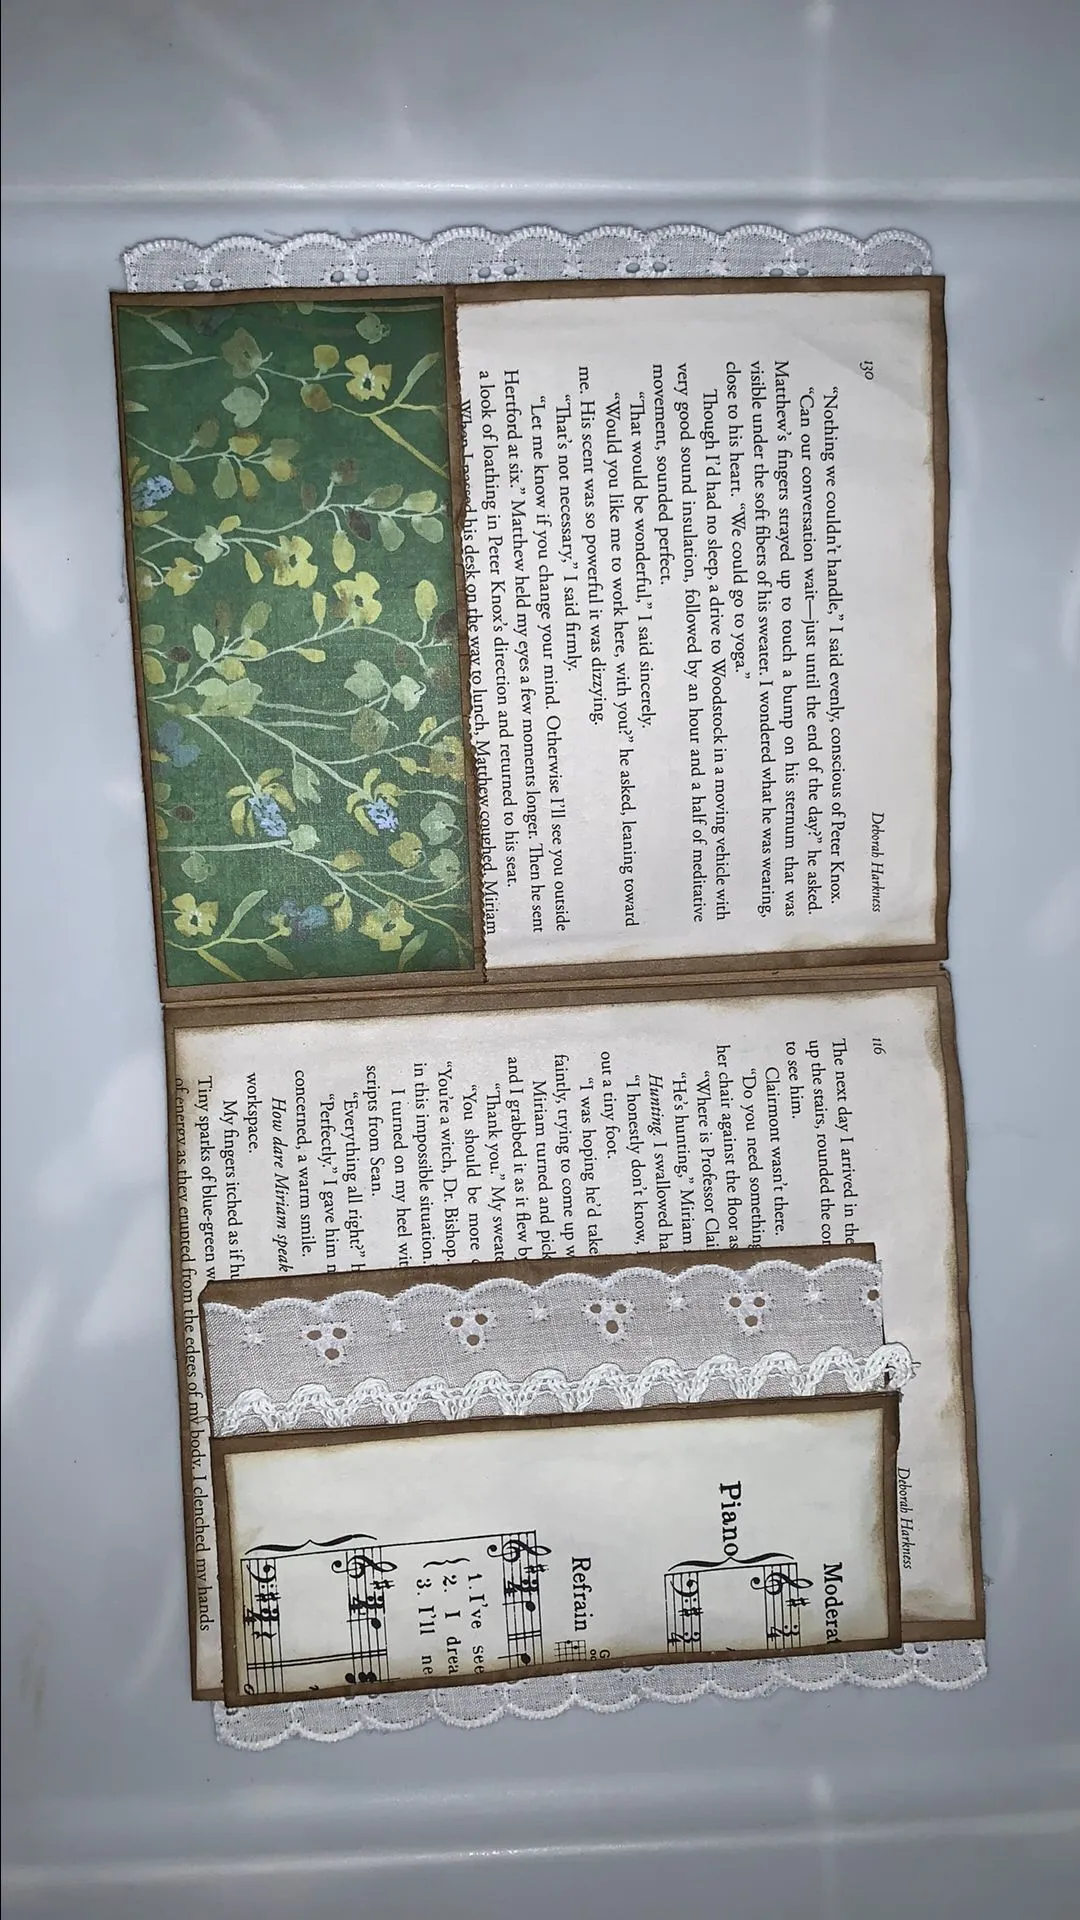 130
Deborah Harkness
“Nothing we couldn’t handle,” I said evenly, conscious of Peter Knox.
“Can our conversation wait—just until the end of the day?” he asked.
Matthew’s fingers strayed up to touch a bump on his sternum that was
visible under the soft fibers of his sweater. I wondered what he was wearing,
close to his heart. “We could go to yoga.”
Though I’d had no sleep, a drive to Woodstock in a moving vehicle with
very good sound insulation, followed by an hour and a half of meditative
movement, sounded perfect.
“That would be wonderful,” I said sincerely.
“Would you like me to work here, with you?” he asked, leaning toward
me. His scent was so powerful it was dizzying.
“That’s not necessary,” I said firmly.
“Let me know if you change your mind. Otherwise I’ll see you outside
Hertford at six.” Matthew held my eyes a few moments longer. Then he sent
a look of loathing in Peter Knox’s direction and returned to his seat.
When I passed his desk on the way to lunch, Matthew coughed. Miriam
116
Deborah Harkness
The next day I arrived in the
up the stairs, rounded the cor
to see him.
Clairmont wasn’t there.
“Do you need something
her chair against the floor as
“Where is Professor Clai
“He’s hunting,” Miriam
Hunting. I swallowed ha
“I honestly don’t know,
out a tiny foot.
“I was hoping he’d take
faintly, trying to come up w
Miriam turned and pick
and I grabbed it as it flew b
“Thank you.” My sweate
“You should be more
“You’re a witch, Dr. Bishop.
in this impossible situation.
I turned on my heel wit
scripts from Sean.
“Everything all right?” h
“Perfectly.” I gave him
concerned, a warm smile.
How dare Miriam speak
workspace.
My fingers itched as if hu
Tiny sparks of blue-green w
of energy as they erupted from the edges of my body. I clenched my hands
Moderat
Piano
3
4
3
4
Refrain
G
3
4
1. I’ve see
2. I drea
3. I’ll ne
3
4
3
4